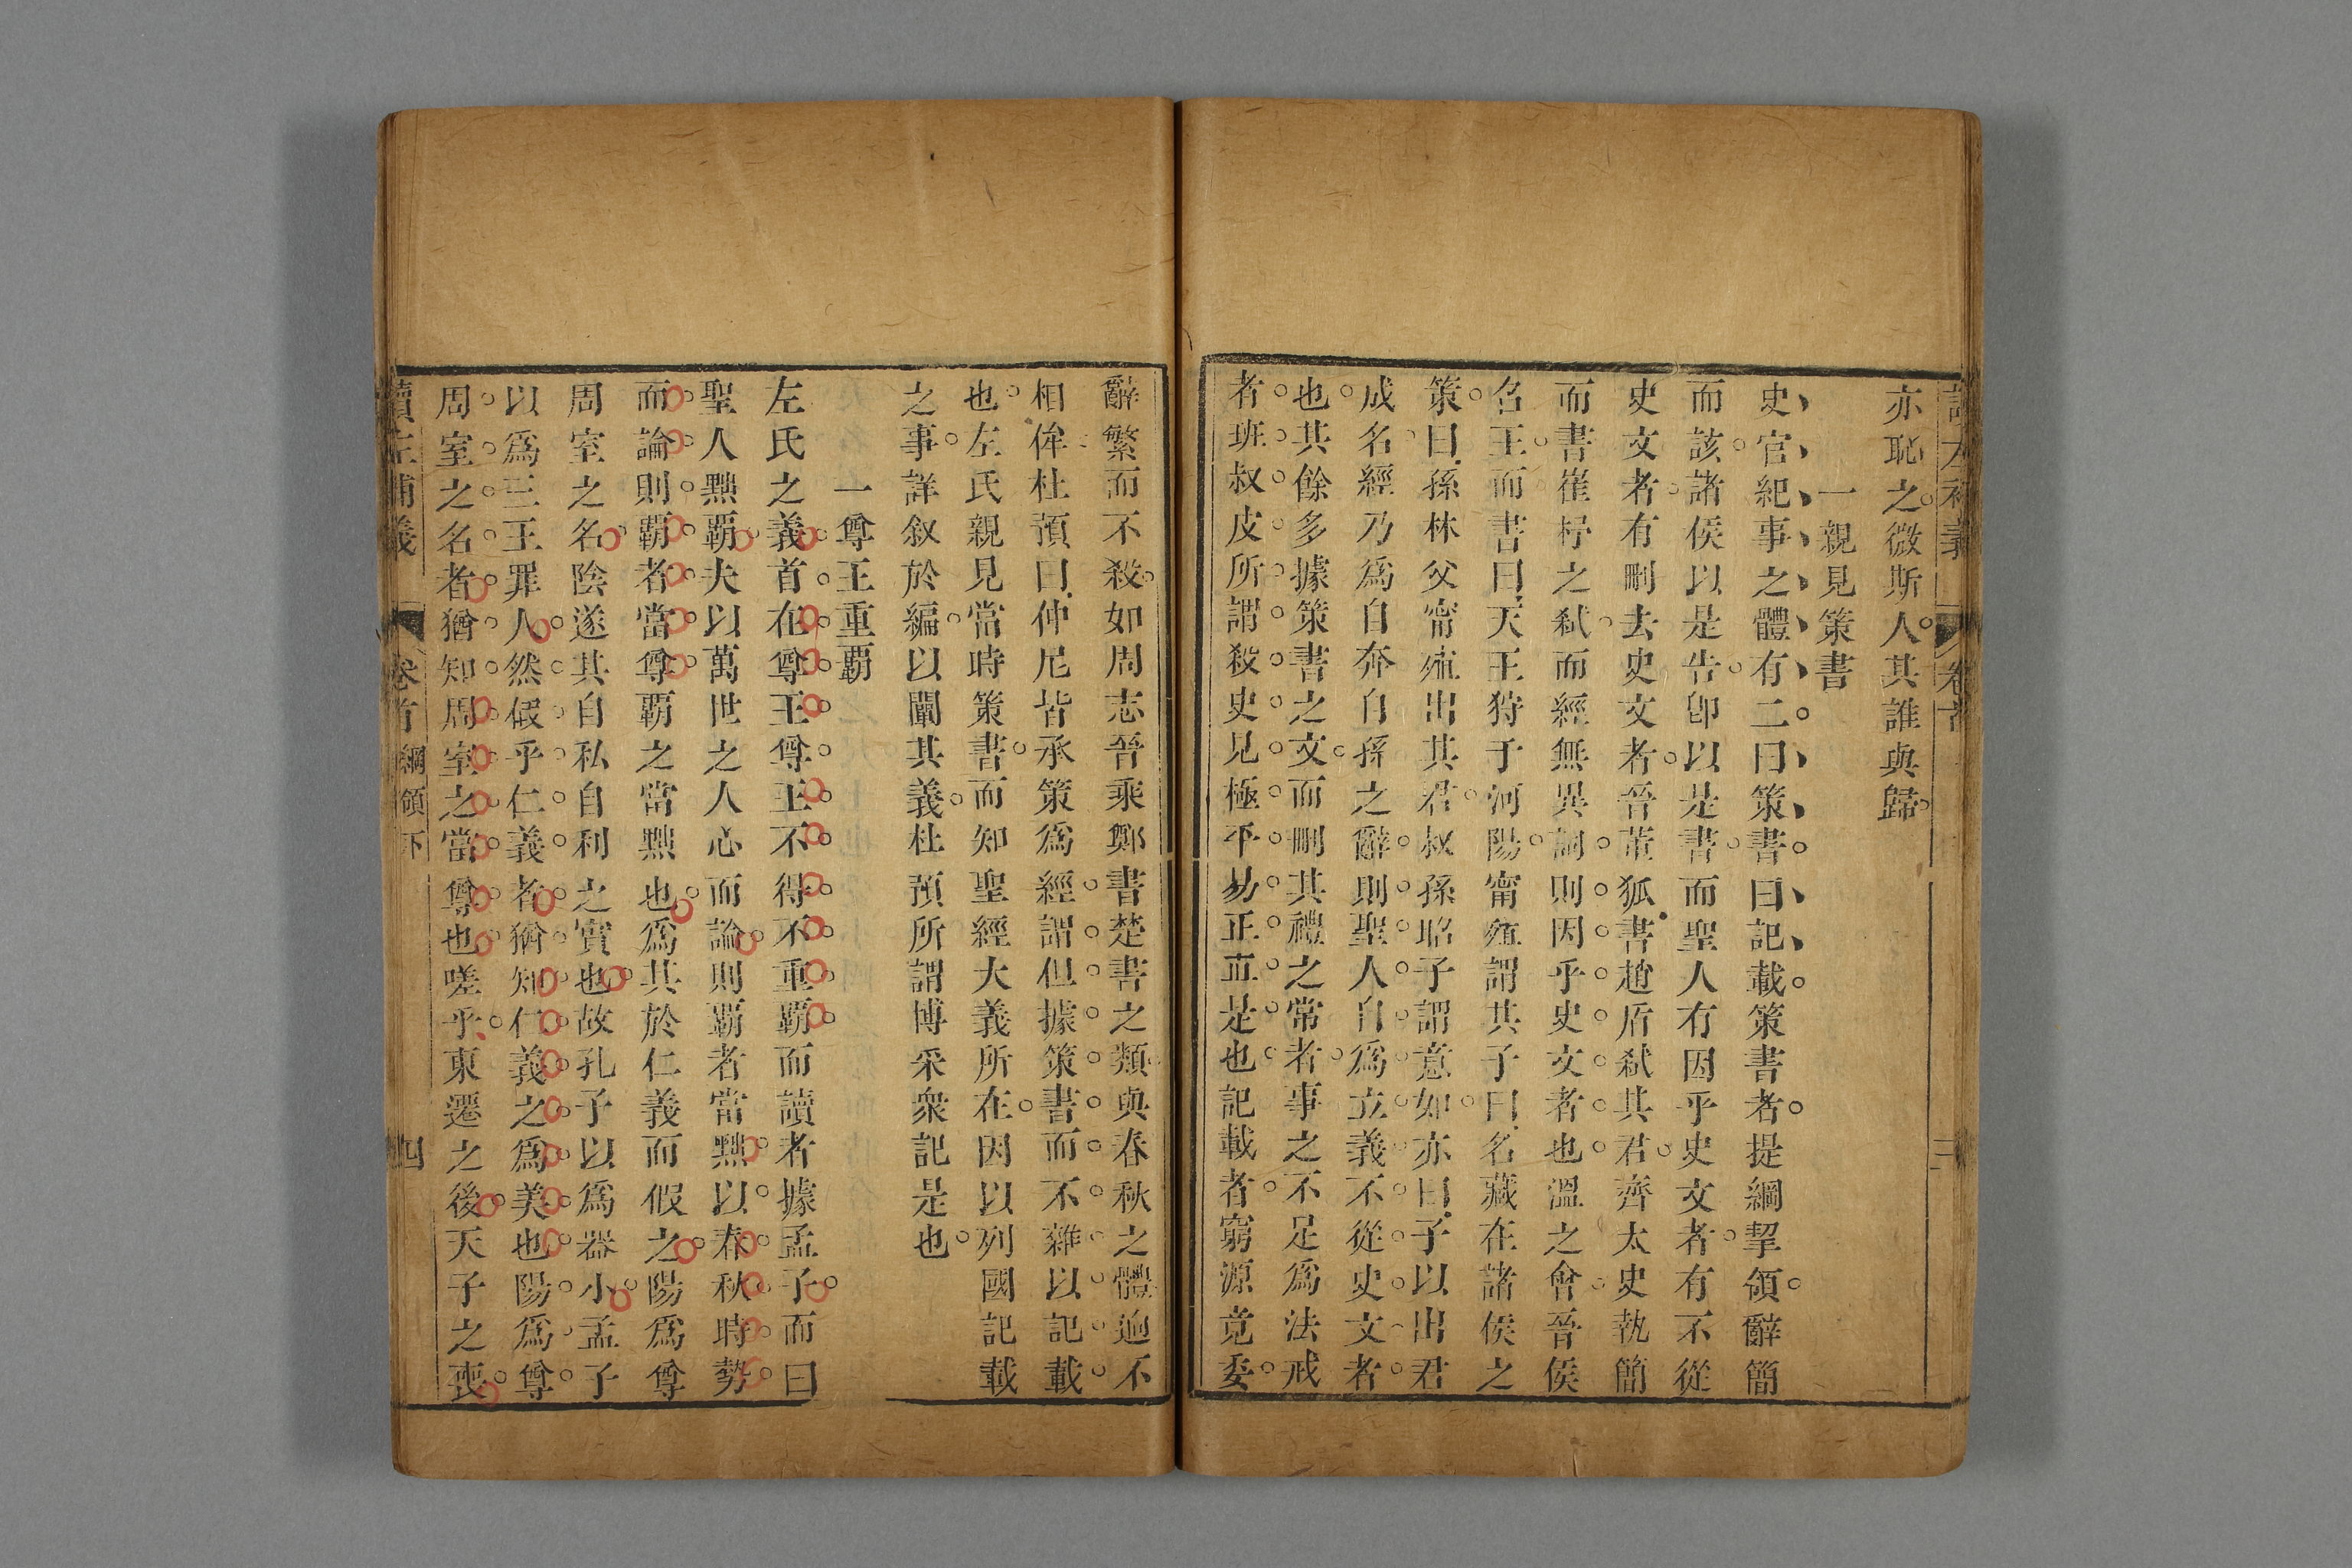 亦恥之微斯人其誰與歸
一親見策書
史官紀事之體有二曰策書曰記載策書者提綱挈領辭簡
而該諸侯以是告卽以是書而聖人有因乎史文者有不從
史文者有刪去史文者晉董狐書趙盾弑其君齊太史執簡
而書崔杼之弑而經無異詞則因乎史文者也溫之會晉侯
名王而書曰天王狩于河陽甯殖謂其子曰名藏在諸侯之
策曰孫林父甯殖出其君叔孫昭子謂意如亦曰子以出君
成名經乃爲自奔自孫之辭則聖人自爲立義不從史文者
也其餘多據策書之文而刪其禮之常者事之不足爲法戒
者班叔皮所謂殺史見極平易正直是也記載者窮源竟委
辭繁而不殺如周志晉乘鄭書楚書之類與春秋之體逈不
相侔杜預曰仲尼皆承策爲經謂但據策書而不雜以記載
也左氏親見當時策書而知聖經大義所在因以列國記載
之事詳叙於編以闡其義杜預所謂博采衆記是也
一尊王重覇
左氏之義首在尊王尊王不得不重覇而讀者據孟子而曰
聖人黜覇夫以萬世之人心而論則覇者當黜以春秋時勢
而論則覇者當尊覇之當黜也爲其於仁義而假之陽爲尊
周室之名陰遂其自私自利之實也故孔子以爲器小孟子
以爲三王罪人然假乎仁義者猶知仁義之爲美也陽爲尊
周室之名者猶知周室之當尊也嗟乎東遷之後天子之喪
讀左補義 卷首 綱領下 四